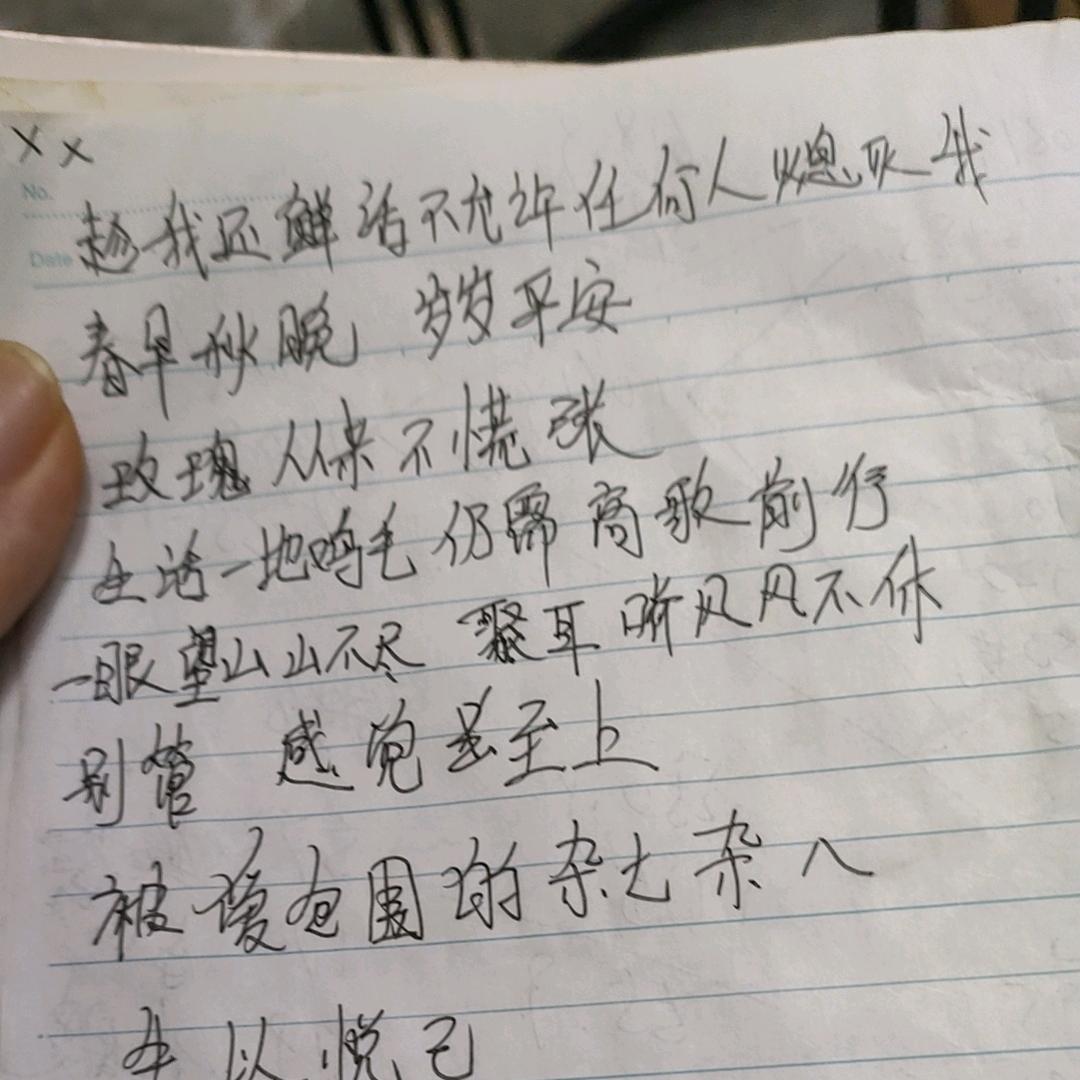 ××
No.
Date
趁我还鲜活不允许任何人熄灭我
春早秋晚 岁岁平安
玫瑰从来不慌张
生活一地鸣毛仍需高歌前行
一眼望山山不尽 聚耳听风风不休
别管 感觉是至上
被爱包围的杂七杂八
年以悦己